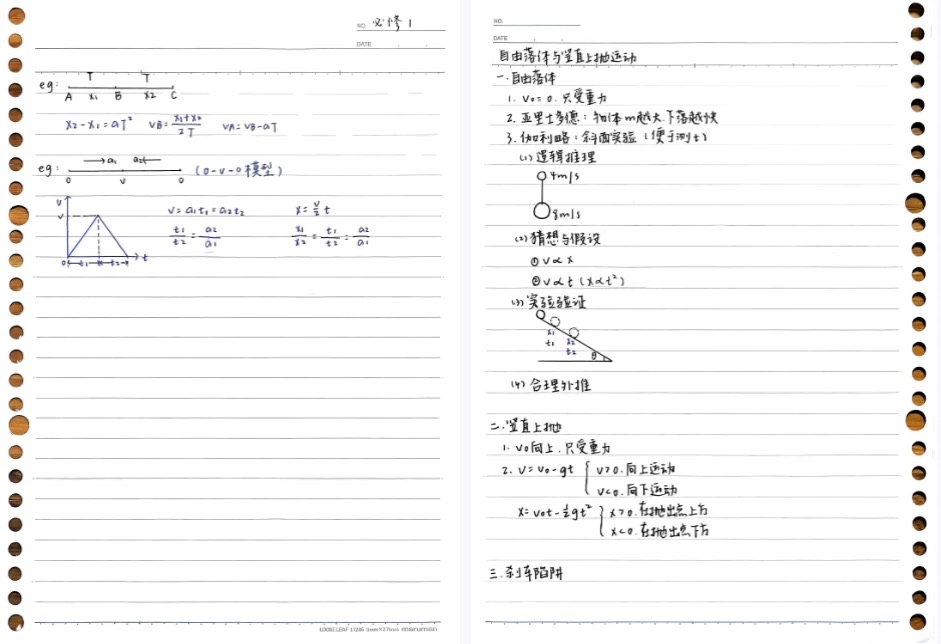 NO. 必修1
DATE
eg: T T
A x1 B x2 C
x2-x1=aT² vB=(x1+x2)/2T vA=vB-aT
eg: →a1 a2←
0 v 0 (0-v-0模型)
v
v
0 t1 t2 t
v=a1t1=a2t2 x=v/2 t
t1/t2=a2/a1 x1/x2=t1/t2=a2/a1
LOOSE LEAF maruman
NO.
DATE
自由落体与竖直上抛运动
一.自由落体
1. v0=0.只受重力
2. 亚里士多德:物体m越大.下落越快
3. 伽利略:斜面实验(便于测t)
(1)逻辑推理
4m/s
8m/s
(2)猜想与假设
①v∝x
②v∝t(x∝t²)
(3)实验验证
x1
t1 x2
t2 θ
(4)合理外推
二.竖直上抛
1. v0向上.只受重力
2. v=v0-gt { v>0.向上运动
v<0.向下运动
x=v0t-½gt² { x>0.在抛出点上方
x<0.在抛出点下方
三.刹车陷阱